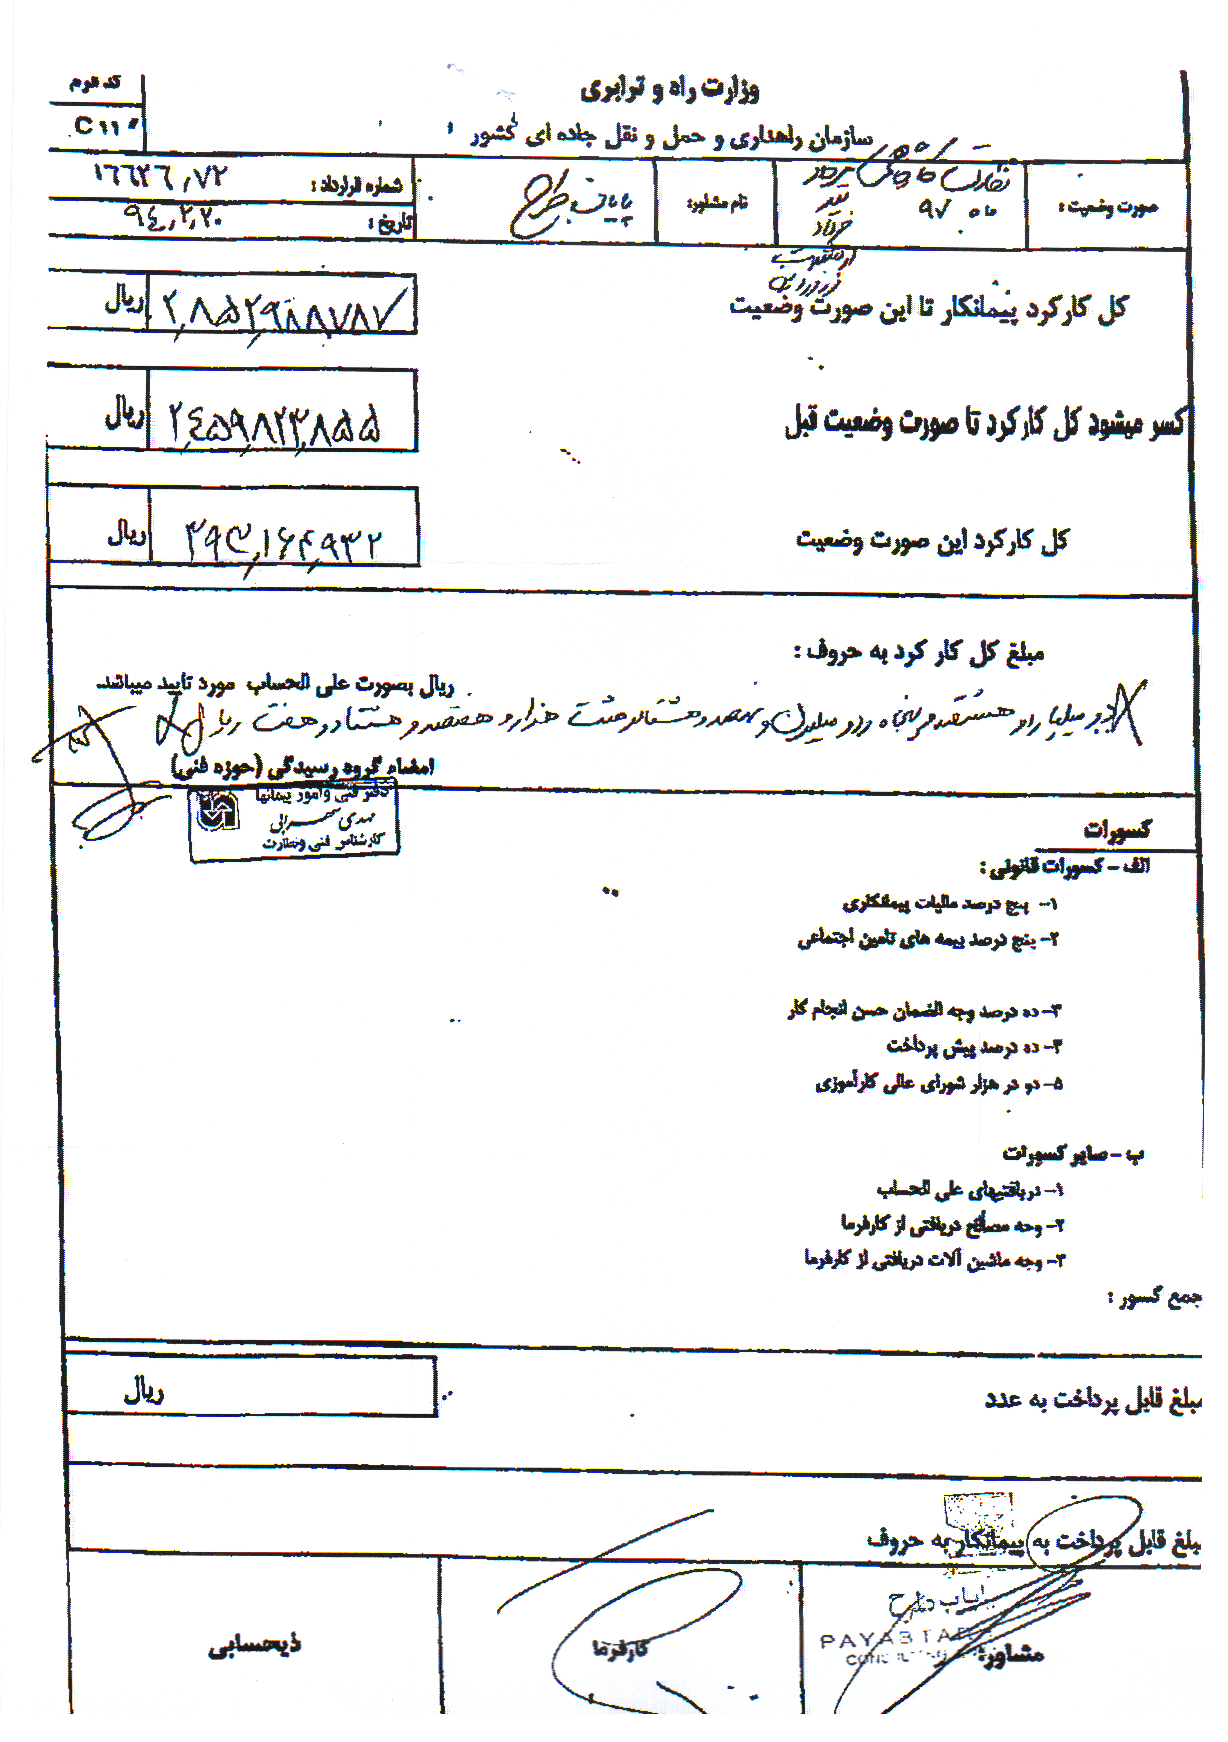 کد فرم
C ۱۱
وزارت راه و ترابری
سازمان راهداری و حمل و نقل جاده ای کشور
صورت وضعیت :
ماه ۹۷
خرداد
نام مشاور:
پایاب طرح
شماره قرارداد :
۱۶۶۲۶٫۷۲
تاریخ :
۹۴٫۲٫۲۰
کل کارکرد پیمانکار تا این صورت وضعیت
۲٫۸۵۲٫۹۸۸٫۷۸۷
ریال
کسر میشود کل کارکرد تا صورت وضعیت قبل
۲٫۴۵۹٫۸۲۳٫۸۵۵
ریال
کل کارکرد این صورت وضعیت
۳۹۳٫۱۶۴٫۹۳۲
ریال
مبلغ کل کار کرد به حروف :
ریال بصورت علی الحساب مورد تایید میباشد.
دو میلیارد و هشتصد و پنجاه و دو میلیون و نهصد و هشتاد و هشت هزار و هفتصد و هشتاد و هفت ریال
امضاء گروه رسیدگی (حوزه فنی)
دفتر فنی و امور پیمانها
مهدی سهرابی
کارشناس فنی ونظارت
کسورات
الف - کسورات قانونی :
۱- پنج درصد مالیات پیمانکاری
۲- پنج درصد بیمه های تامین اجتماعی
۳- ده درصد وجه الضمان حسن انجام کار
۴- ده درصد پیش پرداخت
۵- دو در هزار شورای عالی کارآموزی
ب - سایر کسورات
۱- دریافتیهای علی الحساب
۲- وجه مصالح دریافتی از کارفرما
۳- وجه ماشین آلات دریافتی از کارفرما
جمع کسور :
مبلغ قابل پرداخت به عدد
ریال
مبلغ قابل پرداخت به پیمانکار به حروف
پایاب طرح
PAYAB TARH
مشاور:
کارفرما
ذیحسابی